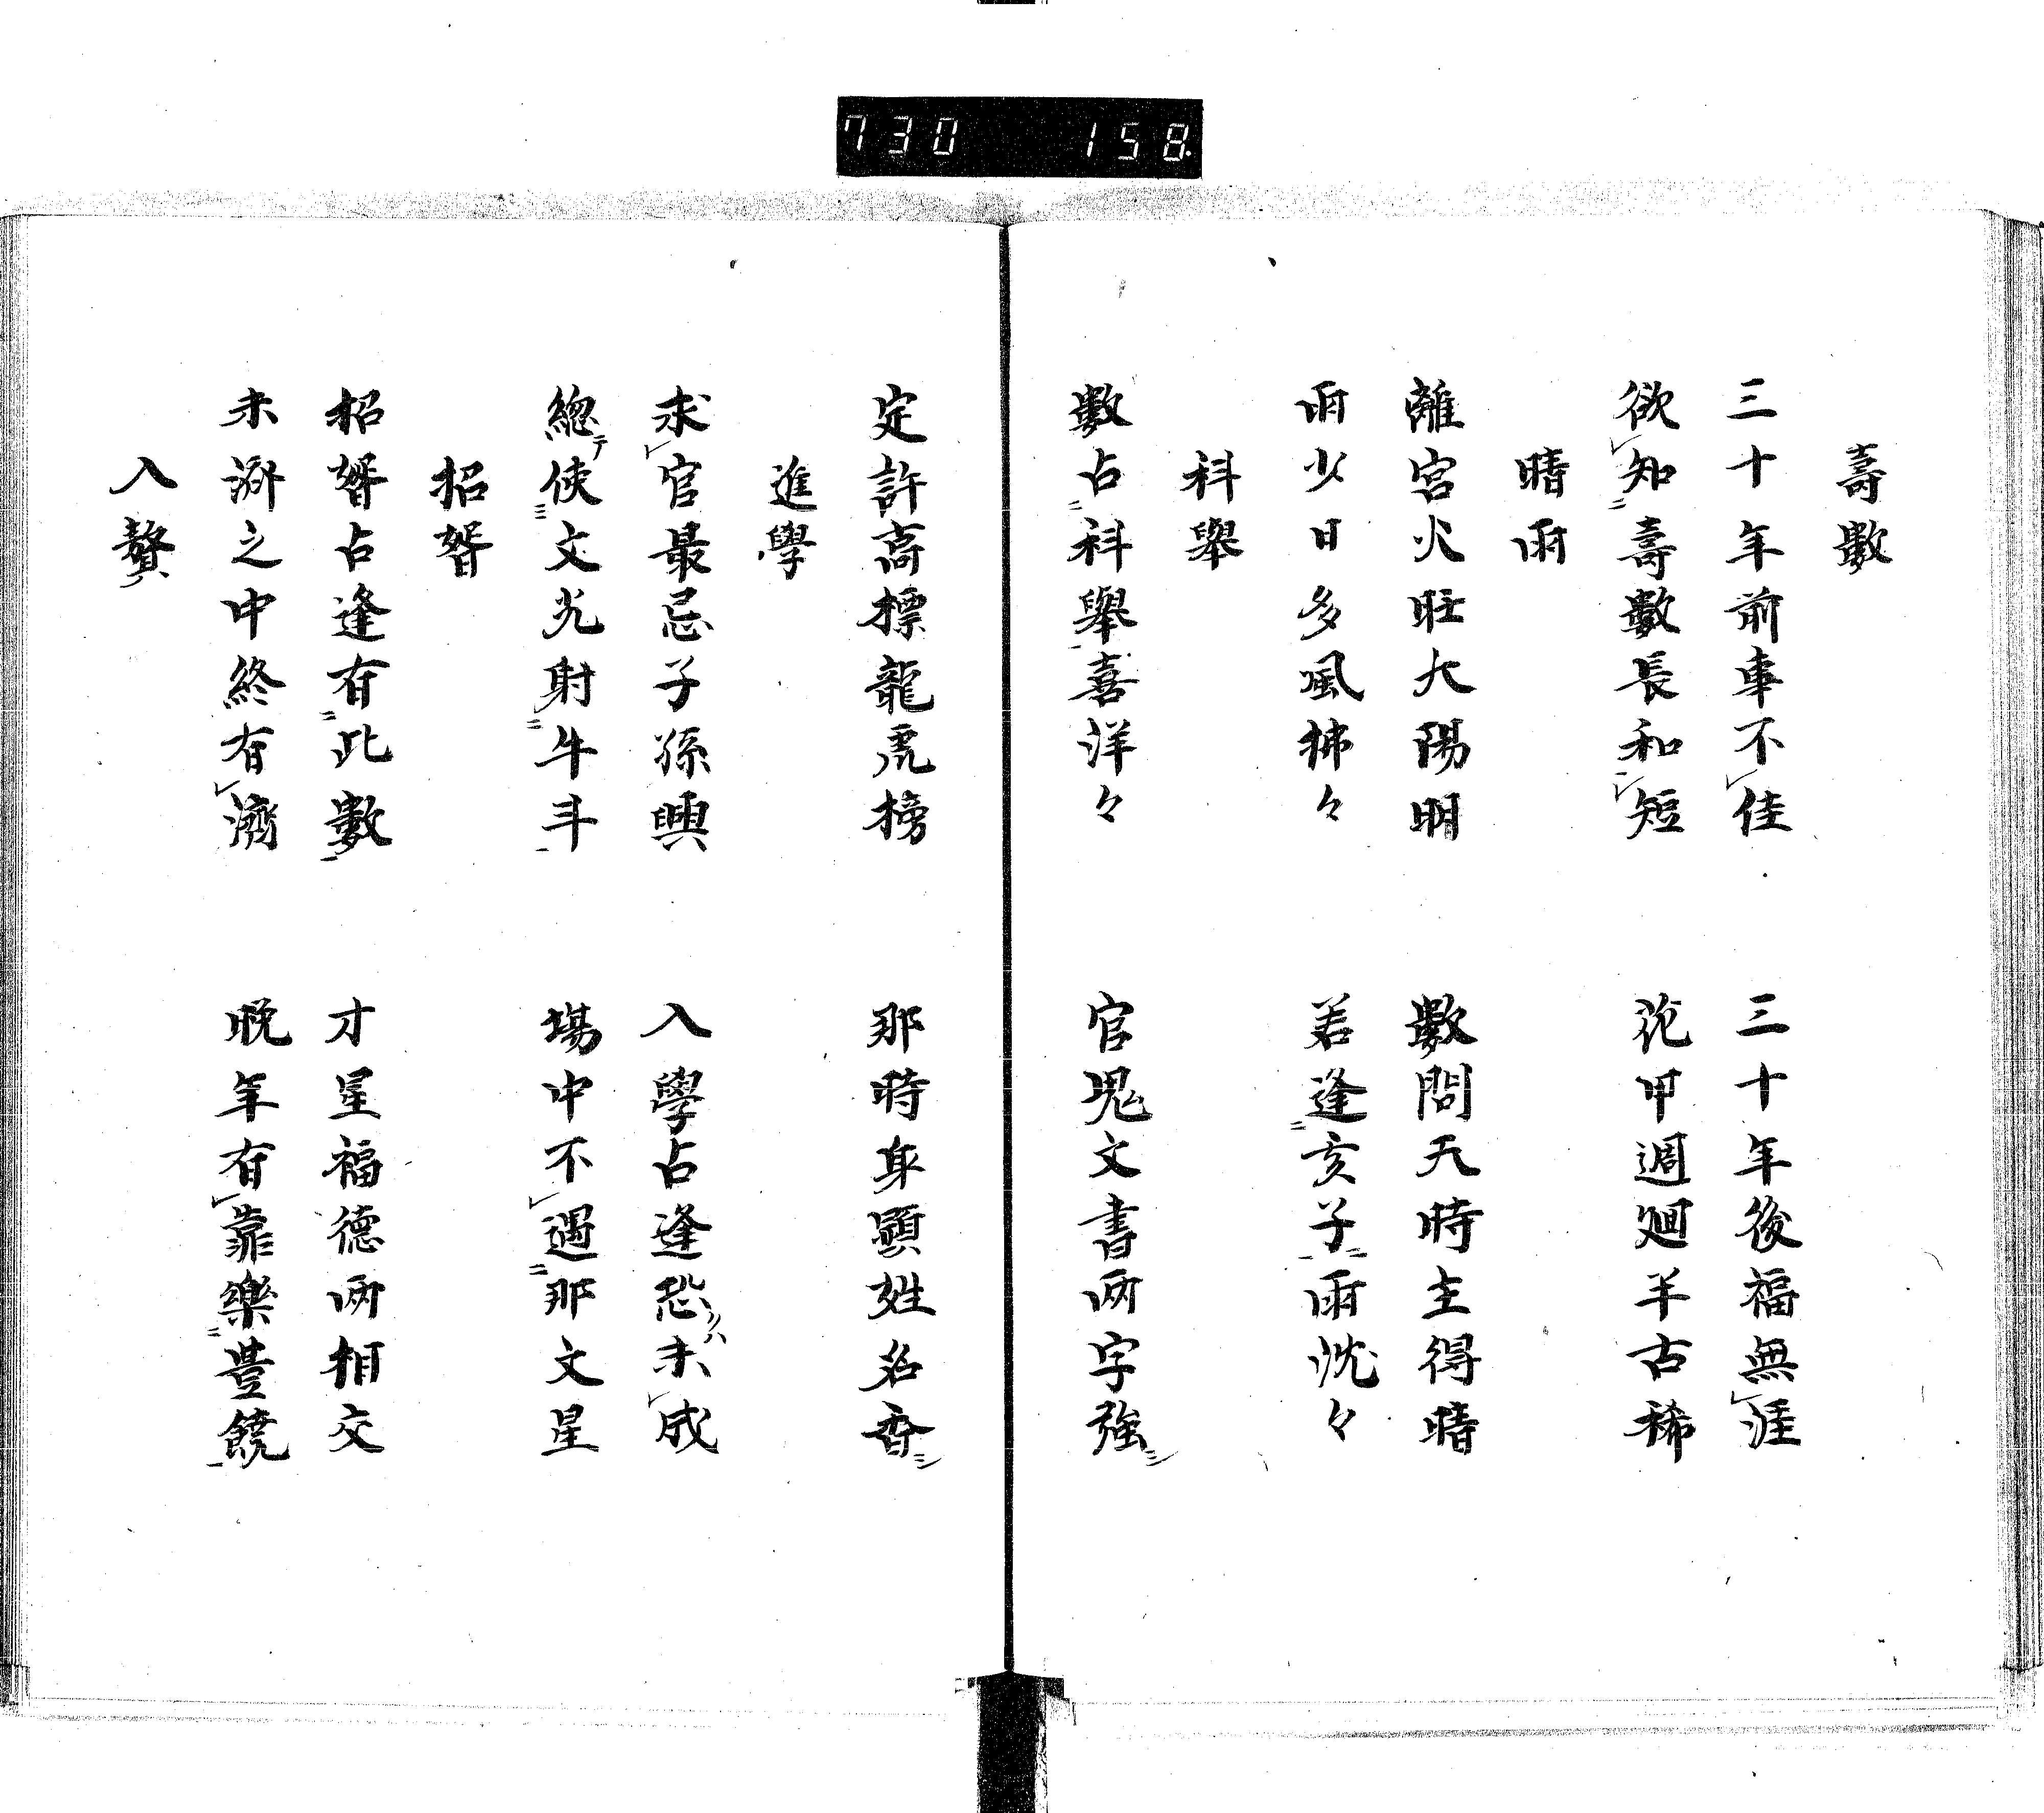 730 158.
壽數
三十年前事不佳 三十年後福無涯
欲知壽數長和短 花甲週廻羊古稀
晴雨
離宮火旺大陽明 數問天時主得晴
雨少日多風拂々 若逢亥子雨沈々
科舉
數占科舉喜洋々 官鬼文書兩字強
定許高標龍虎榜 那時身顕姓名香
進學
求官最忌子孫興 入學占逢恐未成
總使文光射牛斗 場中不遇那文星
招婿
招婿占逢有此數 才星福德兩相交
未濟之中終有濟 晚年有靠樂豊饒
入贅